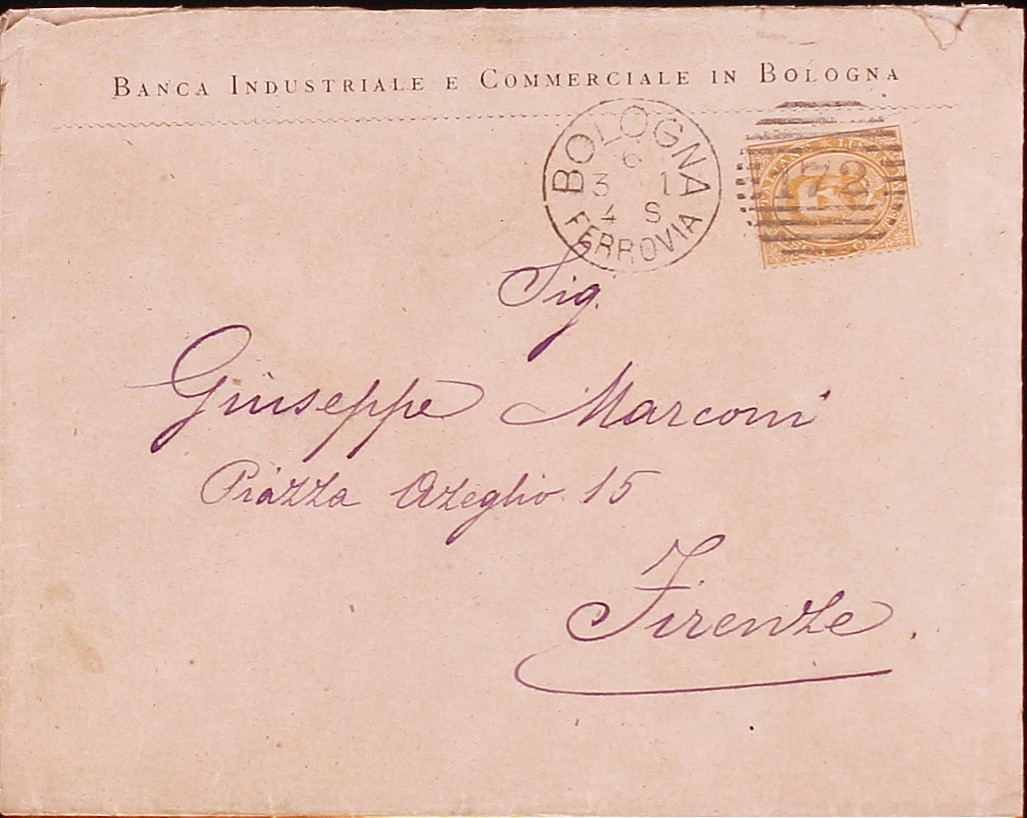 BANCA INDUSTRIALE E COMMERCIALE IN BOLOGNA
BOLOGNA
6
3 1
4 S
FERROVIA
172
Sig.
Giuseppe Marconi
Piazza Azeglio 15
Firenze.